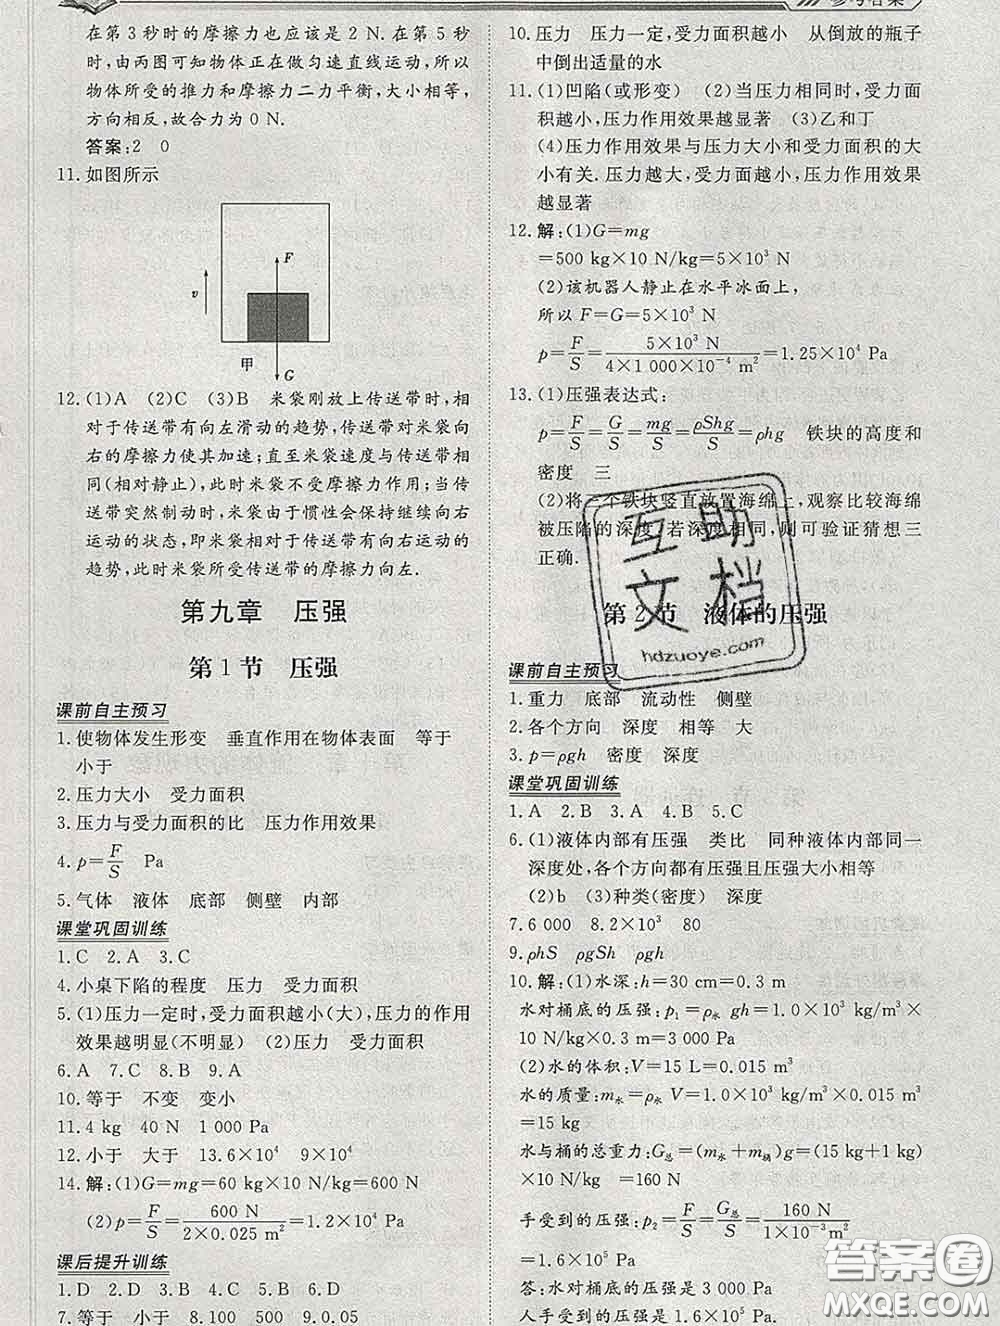 参考答案
在第3秒时的摩擦力也应该是2 N.在第5秒
时,由两图可知物体正在做匀速直线运动,所以
物体所受的推力和摩擦力二力平衡,大小相等,
方向相反,故合力为0 N.
答案:2 0
11.如图所示
F
v
甲
G
12.(1)A (2)C (3)B 米袋刚放上传送带时,相
对于传送带有向左滑动的趋势,传送带对米袋
向右的摩擦力使其加速;直至米袋速度与传送
带相同(相对静止),此时米袋不受摩擦力作用;当传
送带突然制动时,米袋由于惯性会保持继续向右
运动的状态,即米袋相对传送带有向右运动的
趋势,此时米袋所受传送带的摩擦力向左.
第九章 压强
第1节 压强
课前自主预习
1.使物体发生形变 垂直作用在物体表面 等于
小于
2.压力大小 受力面积
3.压力与受力面积的比 压力作用效果
4.p=F/S Pa
5.气体 液体 底部 侧壁 内部
课堂巩固训练
1.C 2.A 3.C
4.小桌下陷的程度 压力 受力面积
5.(1)压力一定时,受力面积越小(大),压力的作用
效果越明显(不明显) (2)压力 受力面积
6.A 7.C 8.B 9.A
10.等于 不变 变小
11.4 kg 40 N 1 000 Pa
12.小于 大于 13.6×10⁴ 9×10⁴
14.解:(1)G=mg=60 kg×10 N/kg=600 N
(2)p=F/S=600 N/2×0.025 m²=1.2×10⁴ Pa
课后提升训练
1.D 2.D 3.B 4.C 5.B 6.D
7.等于 小于 8.100 500 9.0.05
10.压力 压力一定,受力面积越小 从倒放的瓶子
中倒出适量的水
11.(1)凹陷(或形变) (2)当压力相同时,受力面
积越小,压力作用效果越显著 (3)乙和丁
(4)压力作用效果与压力大小和受力面积的大
小有关.压力越大,受力面积越小,压力作用效果
越显著
12.解:(1)G=mg
=500 kg×10 N/kg=5×10³ N
(2)该机器人静止在水平冰面上,
所以F=G=5×10³ N
p=F/S=5×10³ N/4×1 000×10⁻⁴ m²=1.25×10⁴ Pa
13.(1)压强表达式:
p=F/S=G/S=mg/S=ρShg/S=ρhg 铁块的高度和
密度 三
(2)将三个铁块竖直放置海绵上,观察比较海绵
被压陷的深度,若深度相同,则可验证猜想三
正确.
互助
文档
hdzuoye.com
第2节 液体的压强
课前自主预习
1.重力 底部 流动性 侧壁
2.各个方向 深度 相等 大
3.p=ρgh 密度 深度
课堂巩固训练
1.A 2.B 3.A 4.B 5.C
6.(1)液体内部有压强 类比 同种液体内部同一
深度处,各个方向都有压强且压强大小相等
(2)b (3)种类(密度) 深度
7.6 000 8.2×10³ 80
9.ρhS ρgSh ρgh
10.解:(1)水深:h=30 cm=0.3 m
水对桶底的压强:p₁=ρ水 gh=1.0×10³ kg/m³×
10 N/kg×0.3 m=3 000 Pa
(2)水的体积:V=15 L=0.015 m³
水的质量:m水=ρ水 V=1.0×10³ kg/m³×0.015 m³
=15 kg
水与桶的总重力:G总=(m水+m桶)g=(15 kg+1 kg)
×10 N/kg =160 N
手受到的压强:p₂=F/S=G总/S=160 N/1×10⁻³ m²
=1.6×10⁵ Pa
答:水对桶底的压强是3 000 Pa
人手受到的压强是1.6×10⁵ Pa.
答案圈
MXQE.COM